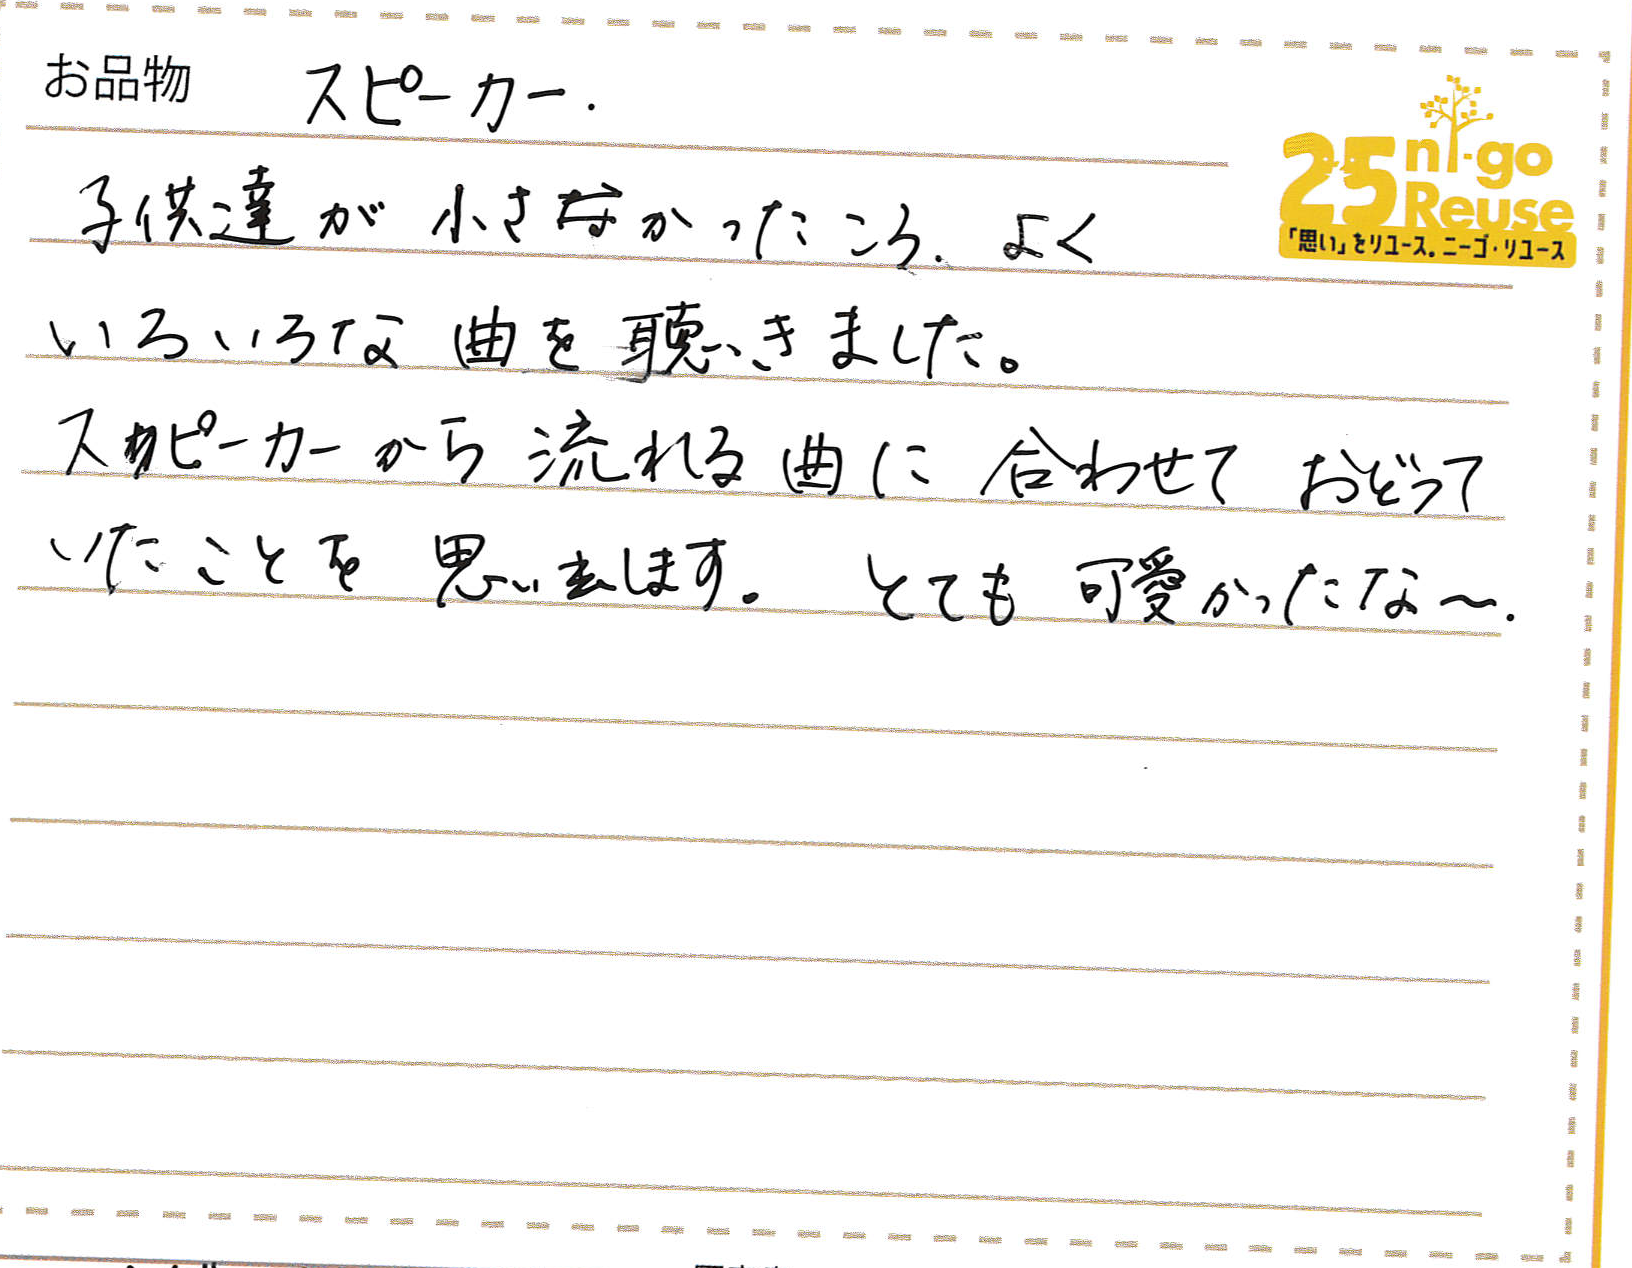 お品物 スピーカー.
25 ni-go Reuse
「思い」をリユース。ニーゴ・リユース
子供達が小さなかったころ、よく
いろいろな曲を聴きました。
スピーカーから流れる曲に合わせておどって
いたことを思い出します。 とても可愛かったな〜.